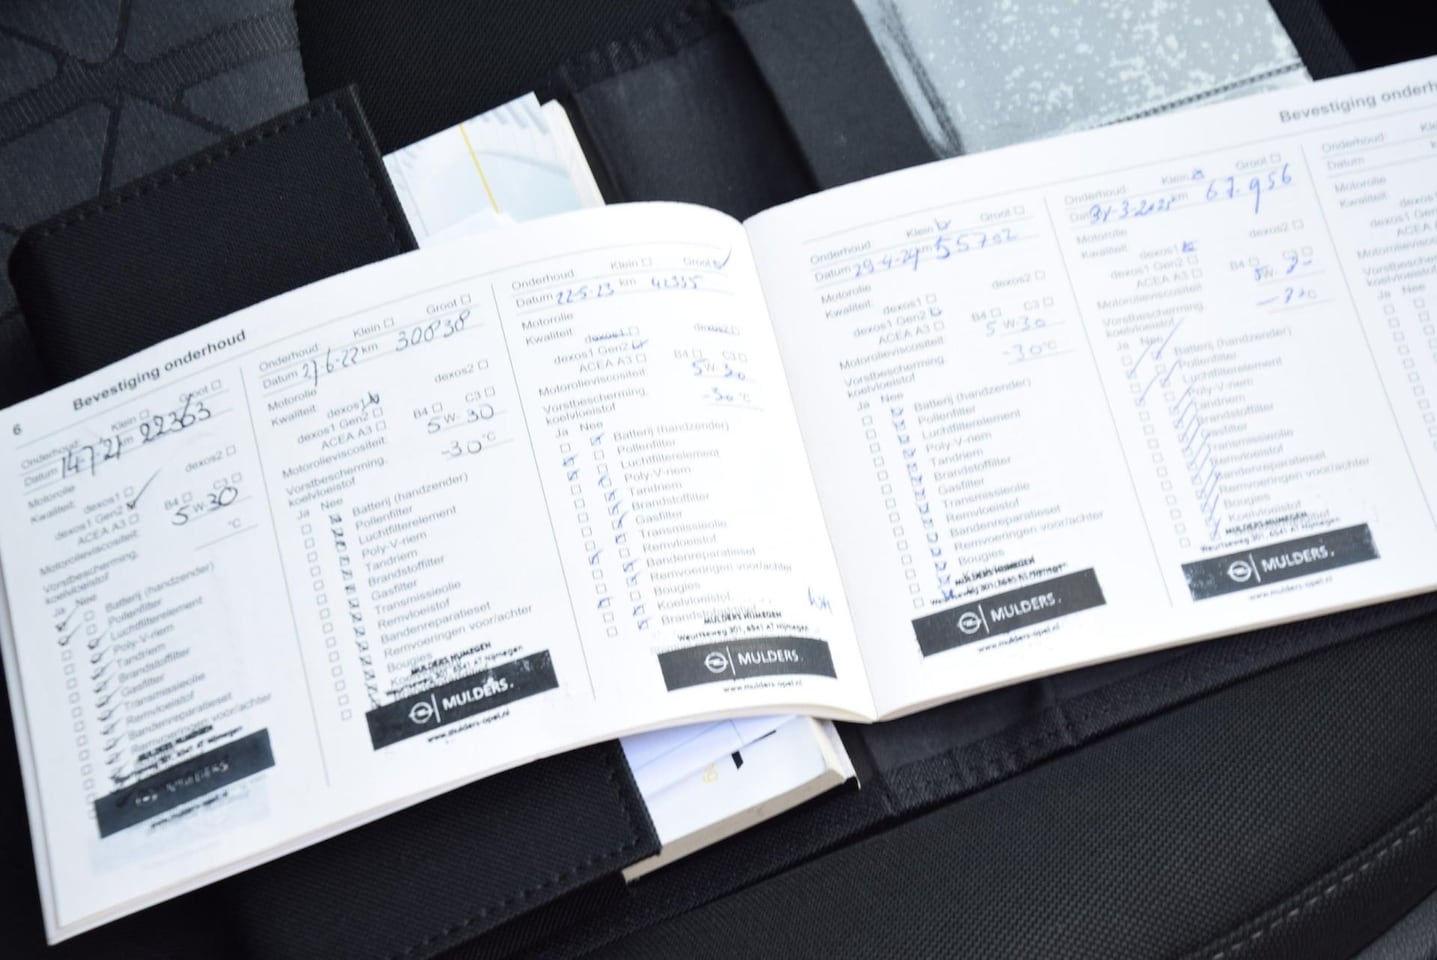 6
Bevestiging onderhoud
Onderhoud: Klein Groot
Datum 14-7-21 km 22363
Motorolie
Kwaliteit: dexos1 dexos2
dexos1 Gen2 B4 C3
ACEA A3
Motorolieviscositeit: 5 W-30
Vorstbescherming, °C
koelvloeistof
Ja Nee
Batterij (handzender)
Pollenfilter
Luchtfilterelement
Poly-V-riem
Tandriem
Brandstoffilter
Gasfilter
Transmissieolie
Remvloeistof
Bandenreparatieset
Remvoeringen voor/achter
MULDERS NIJMEGEN
MULDERS.
www.mulders-opel.nl
Onderhoud: Klein Groot
Datum 27-6-22 km
Motorolie
Kwaliteit: dexos1 dexos2
dexos1 Gen2 B4 C3
ACEA A3
Motorolieviscositeit: 5 W- 30
Vorstbescherming, -30 °C
koelvloeistof
Ja Nee
Batterij (handzender)
Pollenfilter
Luchtfilterelement
Poly-V-riem
Tandriem
Brandstoffilter
Gasfilter
Transmissieolie
Remvloeistof
Bandenreparatieset
Remvoeringen voor/achter
Bougies
MULDERS NIJMEGEN
Weurtseweg 301, 6541 AT Nijmegen
MULDERS.
www.mulders-opel.nl
Onderhoud: Klein Groot
Datum 22-5-23 km 42335
Motorolie
Kwaliteit: dexos1 dexos2
dexos1 Gen2 B4 C3
ACEA A3
Motorolieviscositeit 5 W- 30
Vorstbescherming, -30 °C
koelvloeistof
Ja Nee
Batterij (handzender)
Pollenfilter
Luchtfilterelement
Poly-V-riem
Tandriem
Brandstoffilter
Gasfilter
Transmissieolie
Remvloeistof
Bandenreparatieset
Remvoeringen voor/achter
Bougies
Koelvloeistof
MULDERS NIJMEGEN
Weurtseweg 301, 6541 AT Nijmegen
MULDERS.
www.mulders-opel.nl
Bevestiging onderh
Onderhoud: Klein Groot
Datum 29-4-24 km 55702
Motorolie
Kwaliteit: dexos1 dexos2
dexos1 Gen2 B4 C3
ACEA A3
Motorolieviscositeit: 5 W-30
Vorstbescherming, -30°C
koelvloeistof
Ja Nee
Batterij (handzender)
Pollenfilter
Luchtfilterelement
Poly-V-riem
Tandriem
Brandstoffilter
Gasfilter
Transmissieolie
Remvloeistof
Bandenreparatieset
Remvoeringen voor/achter
Bougies
MULDERS.
www.mulders-opel.nl
Onderhoud: Klein Groot
km 67.956
Motorolie
Kwaliteit: dexos1 dexos2
dexos1 Gen2 B4 C3
ACEA A3
Motorolieviscositeit:
Vorstbescherming
koelvloeistof
Ja Nee
Batterij (handzender)
Pollenfilter
Luchtfilterelement
Poly-V-riem
Tandriem
Brandstoffilter
Gasfilter
Transmissieolie
Remvloeistof
Bandenreparatieset
Remvoeringen voor/achter
Bougies
Koelvloeistof
MULDERS NIJMEGEN
MULDERS.
www.mulders-opel.nl
Onderhoud:
Datum
Motorolie
Kwaliteit:
Ja Nee